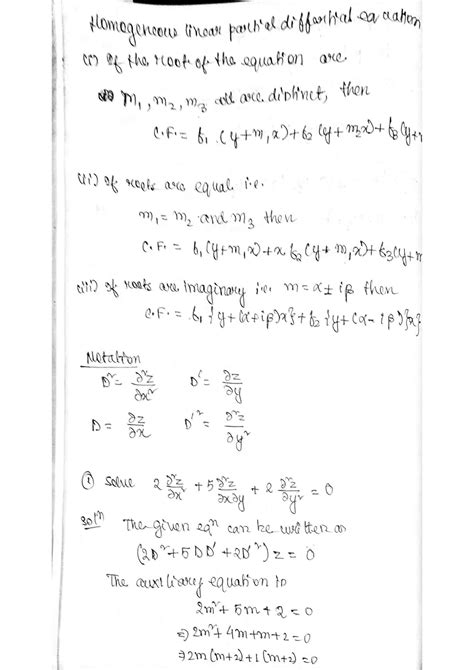 Homogeneous linear partial differtial equation
(i) If the root of the equation are.
m₁, m₂, m₃ all are distinct, then
C.F. = f₁ (y+m₁x)+f₂ (y+m₂x)+f₃(y+
(ii) If roots are equal i.e.
m₁ = m₂ and m₃ then
C.F. = f₁(y+m₁x)+x f₂(y+m₁x)+f₃(y+m
(iii) If roots are Imaginary i.e. m = α ± iβ then
C.F. = f₁{y+(α+iβ)x}+f₂{y+(α-iβ)x}
Notation
D² = ∂²z/∂x² D' = ∂z/∂y
D = ∂z/∂x D'² = ∂²z/∂y²
① Solve 2 ∂²z/∂x² + 5 ∂²z/∂x∂y + 2 ∂²z/∂y² = 0
Solⁿ The given eqⁿ can be written as
(2D²+5DD'+2D'²) z = 0
The auxiliary equation is
2m²+5m+2=0
⇒ 2m²+4m+m+2=0
⇒ 2m(m+2)+1(m+2)=0